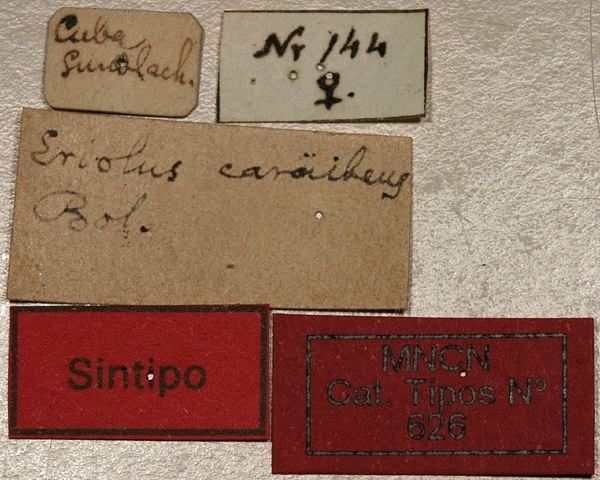 Cuba
Gundlach.
Nr 144
♀.
Eriolus caräibeus
Bol.
Sintipo
MNCN
Cat. Tipos Nº
626